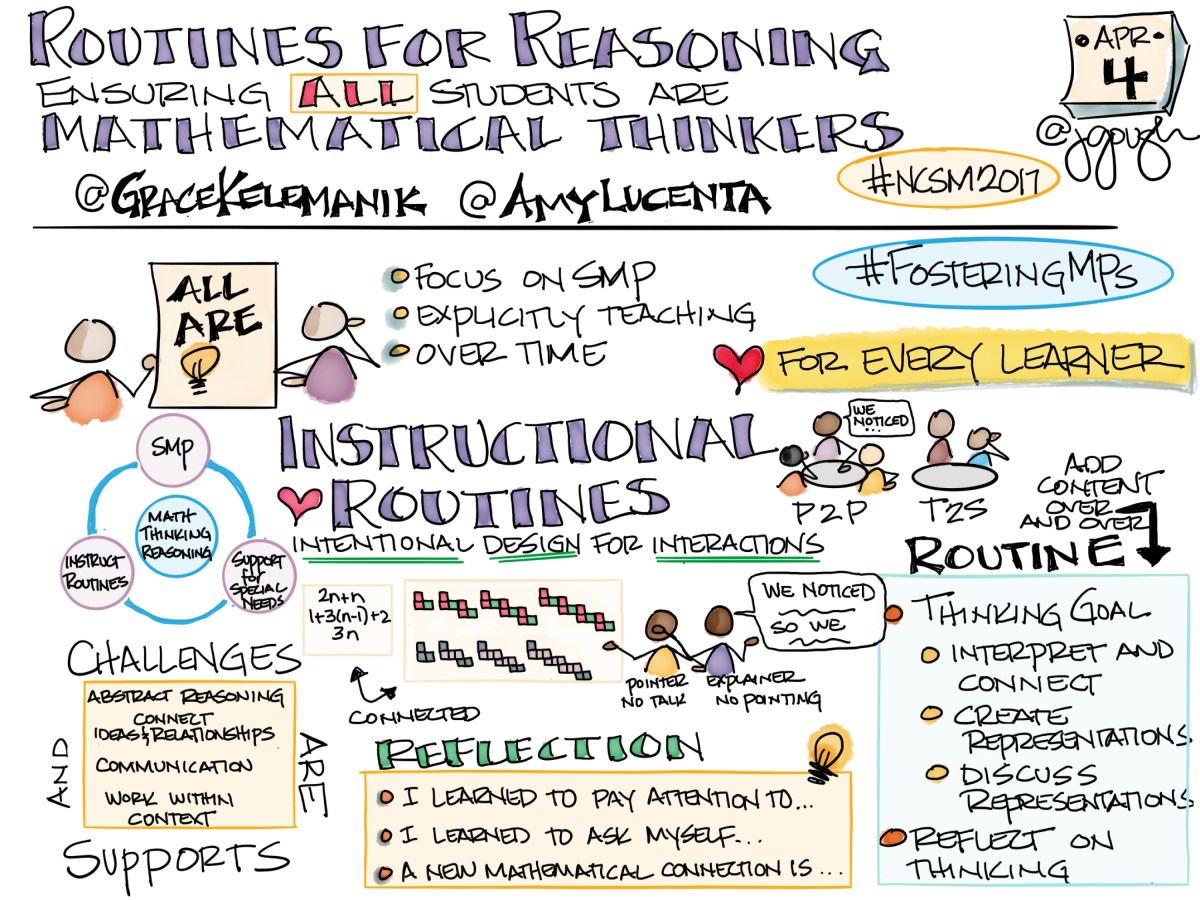 ROUTINES FOR REASONING
ENSURING ALL STUDENTS ARE
MATHEMATICAL THINKERS
@GRACEKELEMANIK @AMYLUCENTA
#NCSM2017
APR
4
@jgough
ALL
ARE
FOCUS ON SMP
EXPLICITLY TEACHING
OVER TIME
#FOSTERINGMPs
FOR EVERY LEARNER
SMP
MATH
THINKING
REASONING
INSTRUCT
ROUTINES
SUPPORT
for
SPECIAL
NEEDS
INSTRUCTIONAL
ROUTINES
INTENTIONAL DESIGN FOR INTERACTIONS
WE
NOTICED
...
P2P
T2S
ADD
CONTENT
OVER
AND OVER
ROUTINE
THINKING GOAL
INTERPRET AND
CONNECT
CREATE
REPRESENTATIONS
DISCUSS
REPRESENTATIONS
REFLECT ON
THINKING
2n+n
1+3(n-1)+2
3n
CONNECTED
WE NOTICED
SO WE
POINTER
NO TALK
EXPLAINER
NO POINTING
CHALLENGES
ABSTRACT REASONING
CONNECT
IDEAS & RELATIONSHIPS
COMMUNICATION
WORK WITHIN
CONTEXT
AND
ARE
SUPPORTS
REFLECTION
I LEARNED TO PAY ATTENTION TO...
I LEARNED TO ASK MYSELF...
A NEW MATHEMATICAL CONNECTION IS...